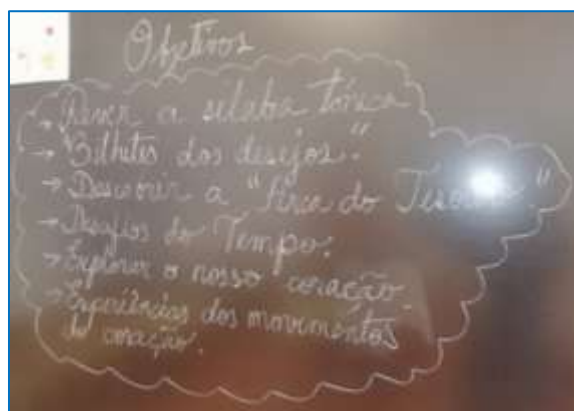 Objetivos
→ Rever a sílaba tónica
→ "Bilhetes dos desejos".
→ Descobrir a "Arca do Tesouro."
→ Desafios do Tempo.
→ Explorar o nosso coração.
→ Experiências dos movimentos
do coração.